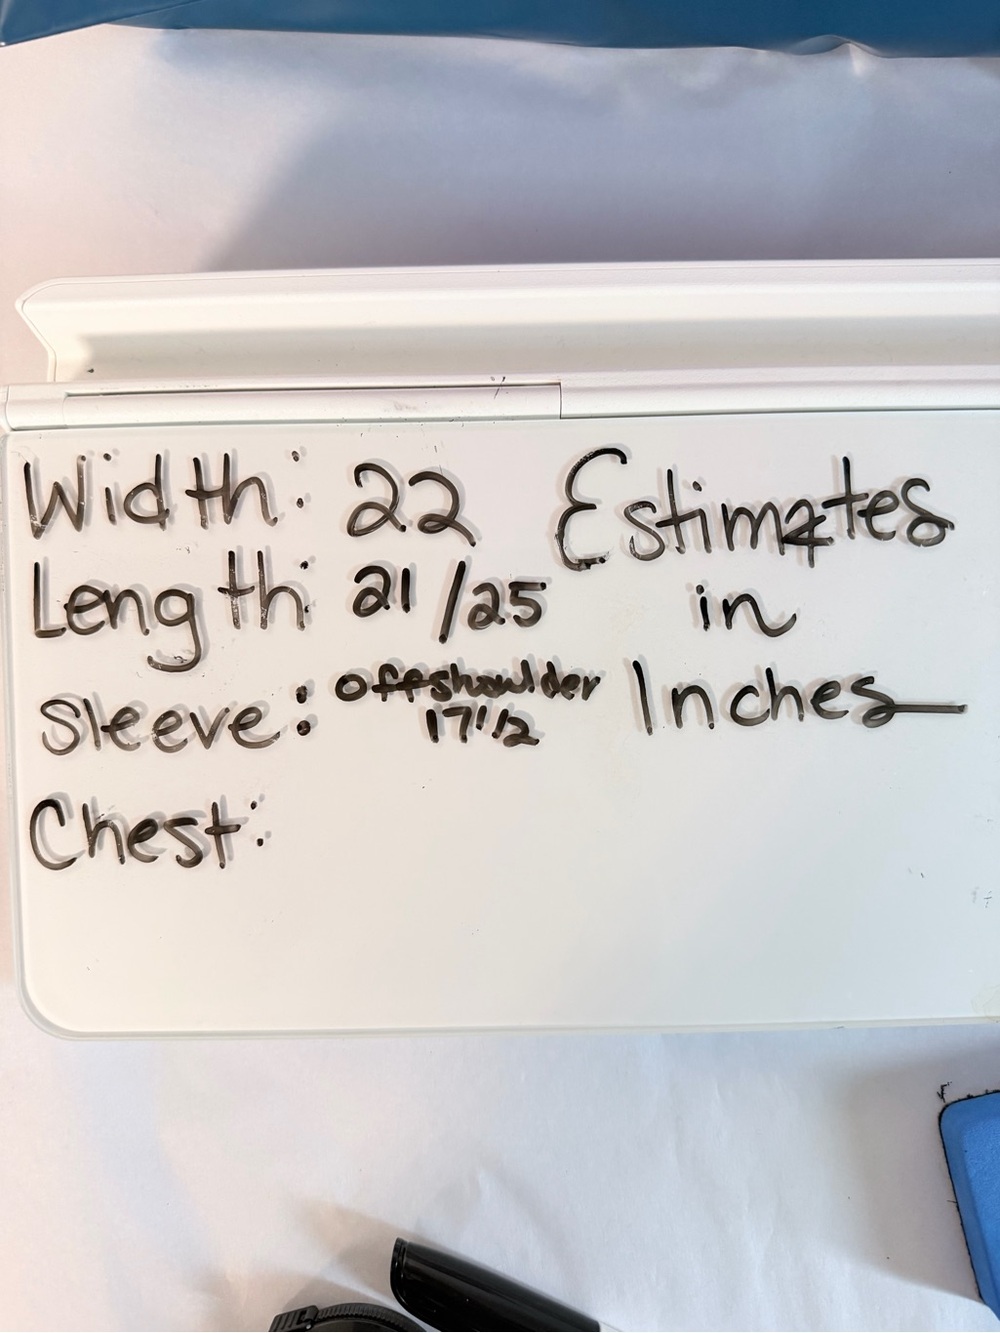 Width: 22
Length: 21/25
Sleeve: offshoulder
17 1/2
Chest:
Estimates
in
Inches